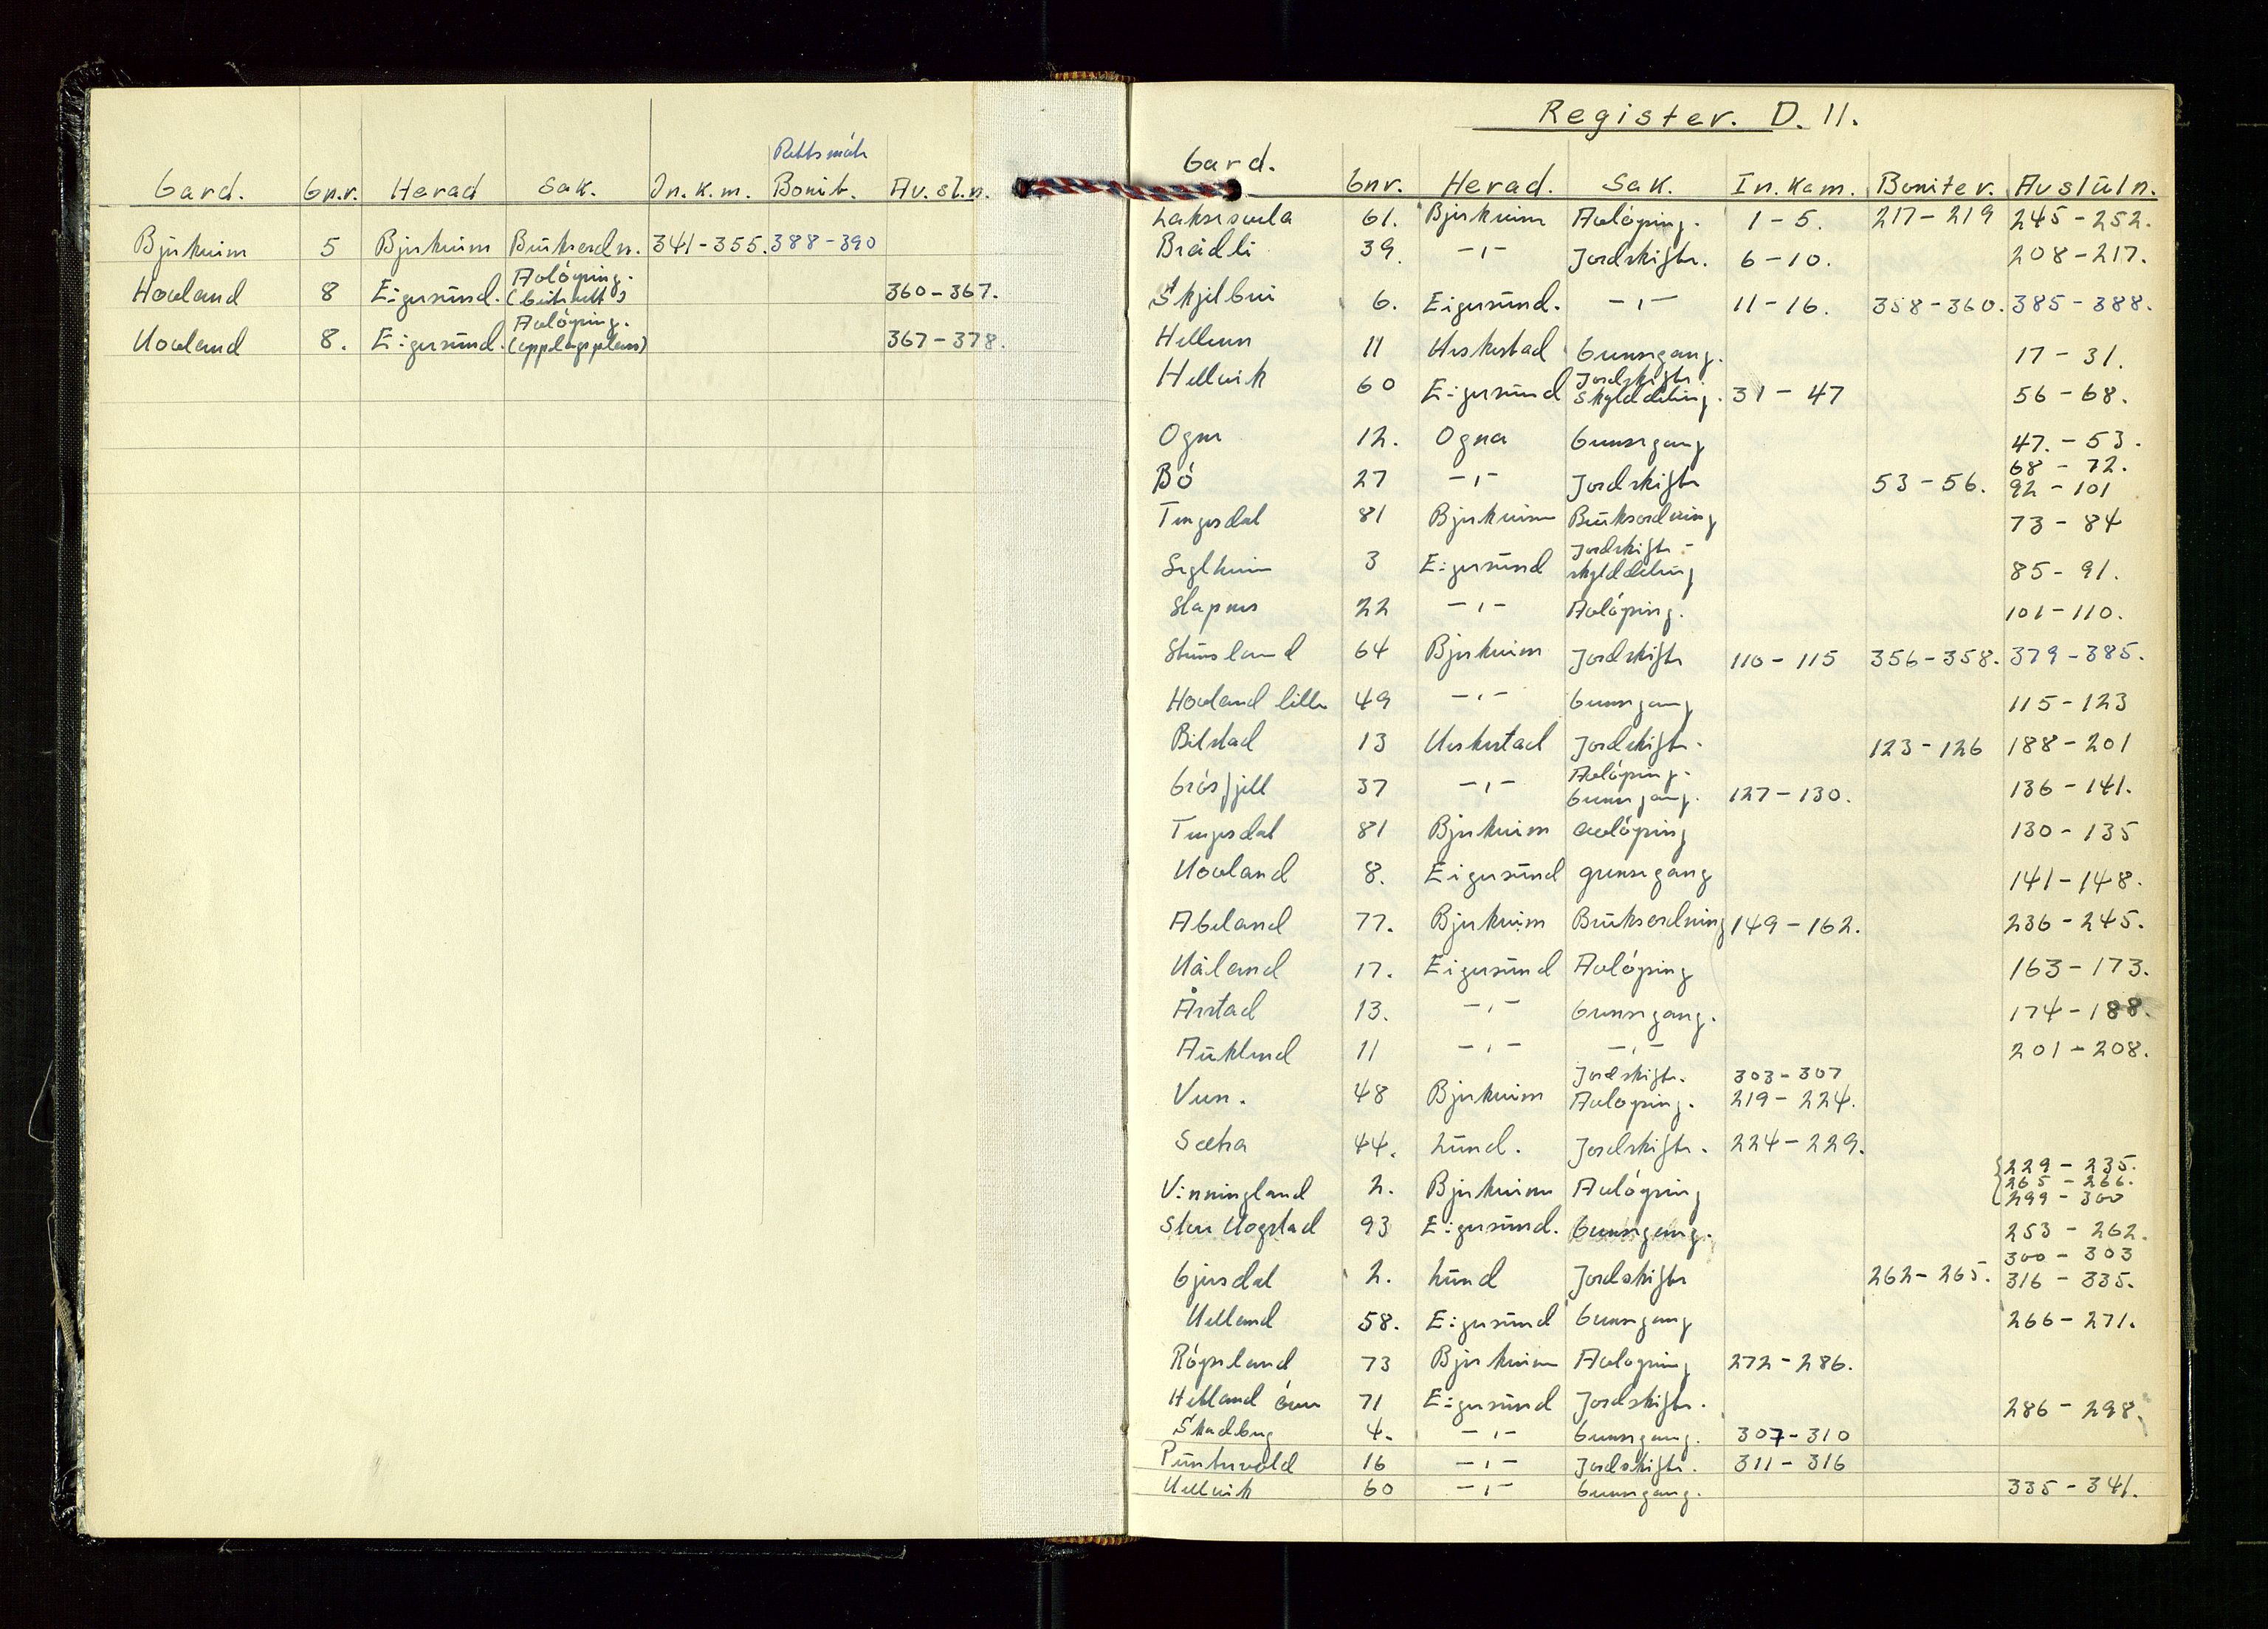 Rettsmøte
Gard. Gn.r. Herad Sak. In.k.m. Bonit. Av.sl.n.
Bjerkreim 5 Bjerkreim Bruksordn. 341-355. 388-390
Hovland 8 Eigersund. Avløysing. (beiterett) 360-367.
Hovland 8. Eigersund. Avløysing. (opplagsplass) 367-378.
Register. D. 11.
Gard. Gnr. Herad. Sak. In.kom. Boniter. Avslutn.
Laksesvela 61. Bjerkreim Avløysing. 1-5. 217-219 245-252.
Breidli 39. -,- Jordskifte. 6-10. 208-217.
Skjelbrei 6. Eigersund. -,- 11-16. 358-360. 385-388.
Helleren 11 Heskestad Grensegang. 17-31.
Hellvik 60 Eigersund Jordskifte. Skylddeling. 31-47 56-68.
Ogna 12. Ogna Grensegang 47.-53.
68-72.
Bø 27 -,- Jordskifte 53-56. 92-101
Tengesdal 81 Bjerkreim Bruksordning 73-84
Seglheim 3 Eigersund Jordskifte - skylddeling 85-91.
Slapnes 22 -,- Avløysing. 101-110.
Steinsland 64 Bjerkreim Jordskifte 110-115 356-358. 379-385.
Hovland lille 49 -,- Grensegang 115-123
Bilstad 13 Heskestad Jordskifte. 123-126 188-201
Gråsfjell 37 -,- Avløysing. Grensegang. 127-130. 136-141.
Tengesdal 81 Bjerkreim avløysing 130-135
Hovland 8. Eigersund grensegang 141-148.
Abeland 77. Bjerkreim Bruksordning 149-162. 236-245.
Håland 17. Eigersund Avløysing 163-173.
Årstad 13. -,- Grensegang. 174-188.
Aukland 11 -,- -,- 201-208.
Jordskifte. 303-307
Veen. 48 Bjerkreim Avløysing. 219-224.
Sætra 44. Lund. Jordskifte. 224-229.
229-235.
Vinningland 2. Bjerkreim Avløysing 265-266.
299-300
Store Hogstad 93 Eigersund. Grensegang. 253-262.
300-303
Gjersdal 2. Lund Jordskifte 262-265. 316-335.
Helland 58. Eigersund Grensegang 266-271.
Røysland 73 Bjerkreim Avløysing 272-286.
Hetland øvre 71 Eigersund Jordskifte. 286-298.
Skadberg 4. -,- Grensegang. 307-310
Puntervold 16 -,- Jordskifte. 311-316
Hellvik 60 -,- Grensegang. 335-341.